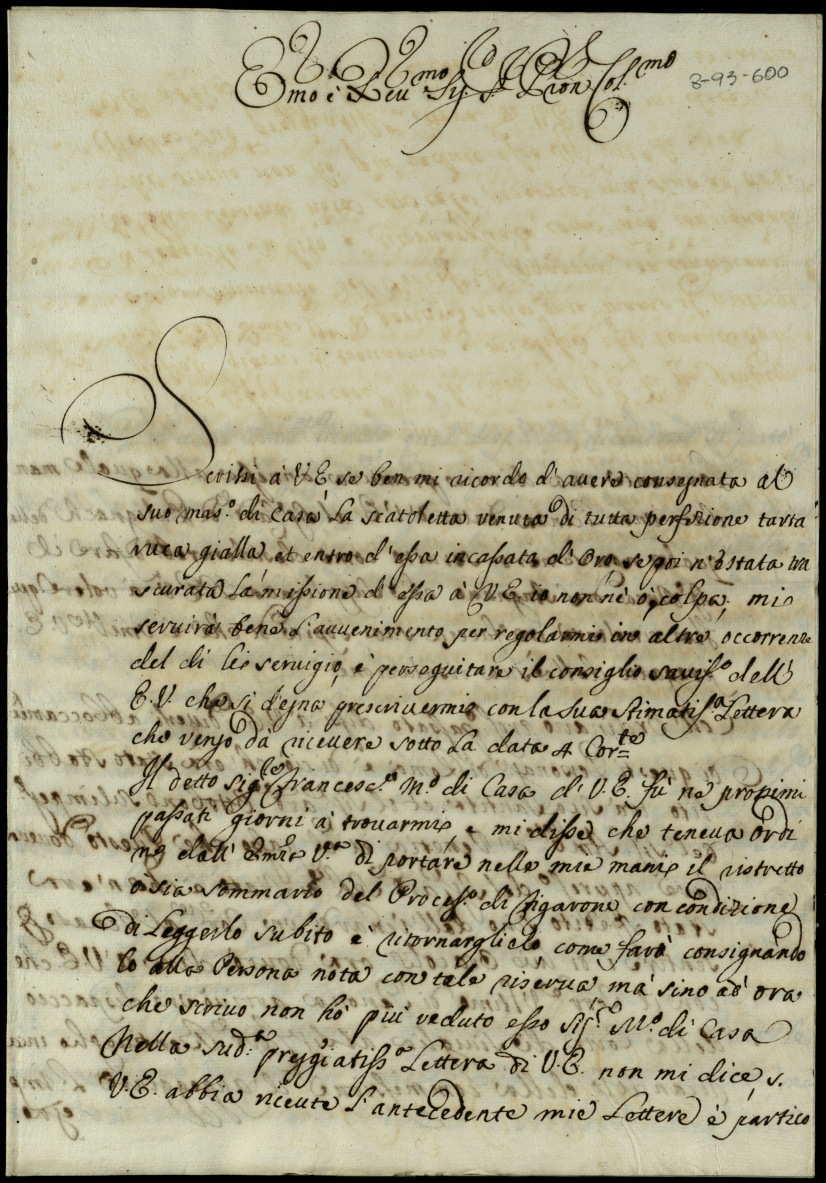 Emo è Reu.mo Sig.r Pron Col.mo
3-93-600
Scrissi à V E se ben mi ricordo d'avere consegnata al
suo mas.o di Casa La scatoletta venuta di tutta perfezione tarta
ruca gialla et entro d'essa incassata d'Oro se poi n'è stata tra
scurata La missione d'essa à V.E io non ne ò colpa, mi
servirà bene L'avvenimento per regolarmi in altre occorrenze
del di lei servigio, è perseguitare il consiglio saviss.o dell'
E.V. che si degna prescrivermi con la sua stimatiss.a Lettera
che vengo dà ricevere sotto La data 4 Cor.te
Il detto Sig.re Francesc.o M.o di Casa di V.E. fù ne prossimi
passati giorni à trovarmi, e mi disse che teneva ordi
ne dall' Em.za V.a di portare nelle mie mani il ristretto
o sia sommario del Process.o di Figarone con condizione
di Leggerlo subito è ritornarglielo come farò consignando
lo alla Persona nota con tale riserva mà sino ad ora
che scrivo non hò più veduto esso Sig.re M.o di Casa
Nella sud.a preggiatiss.a Lettera di V.E. non mi dice s.
V.E. abbia ricevute L'antecedente mie Lettere è partico